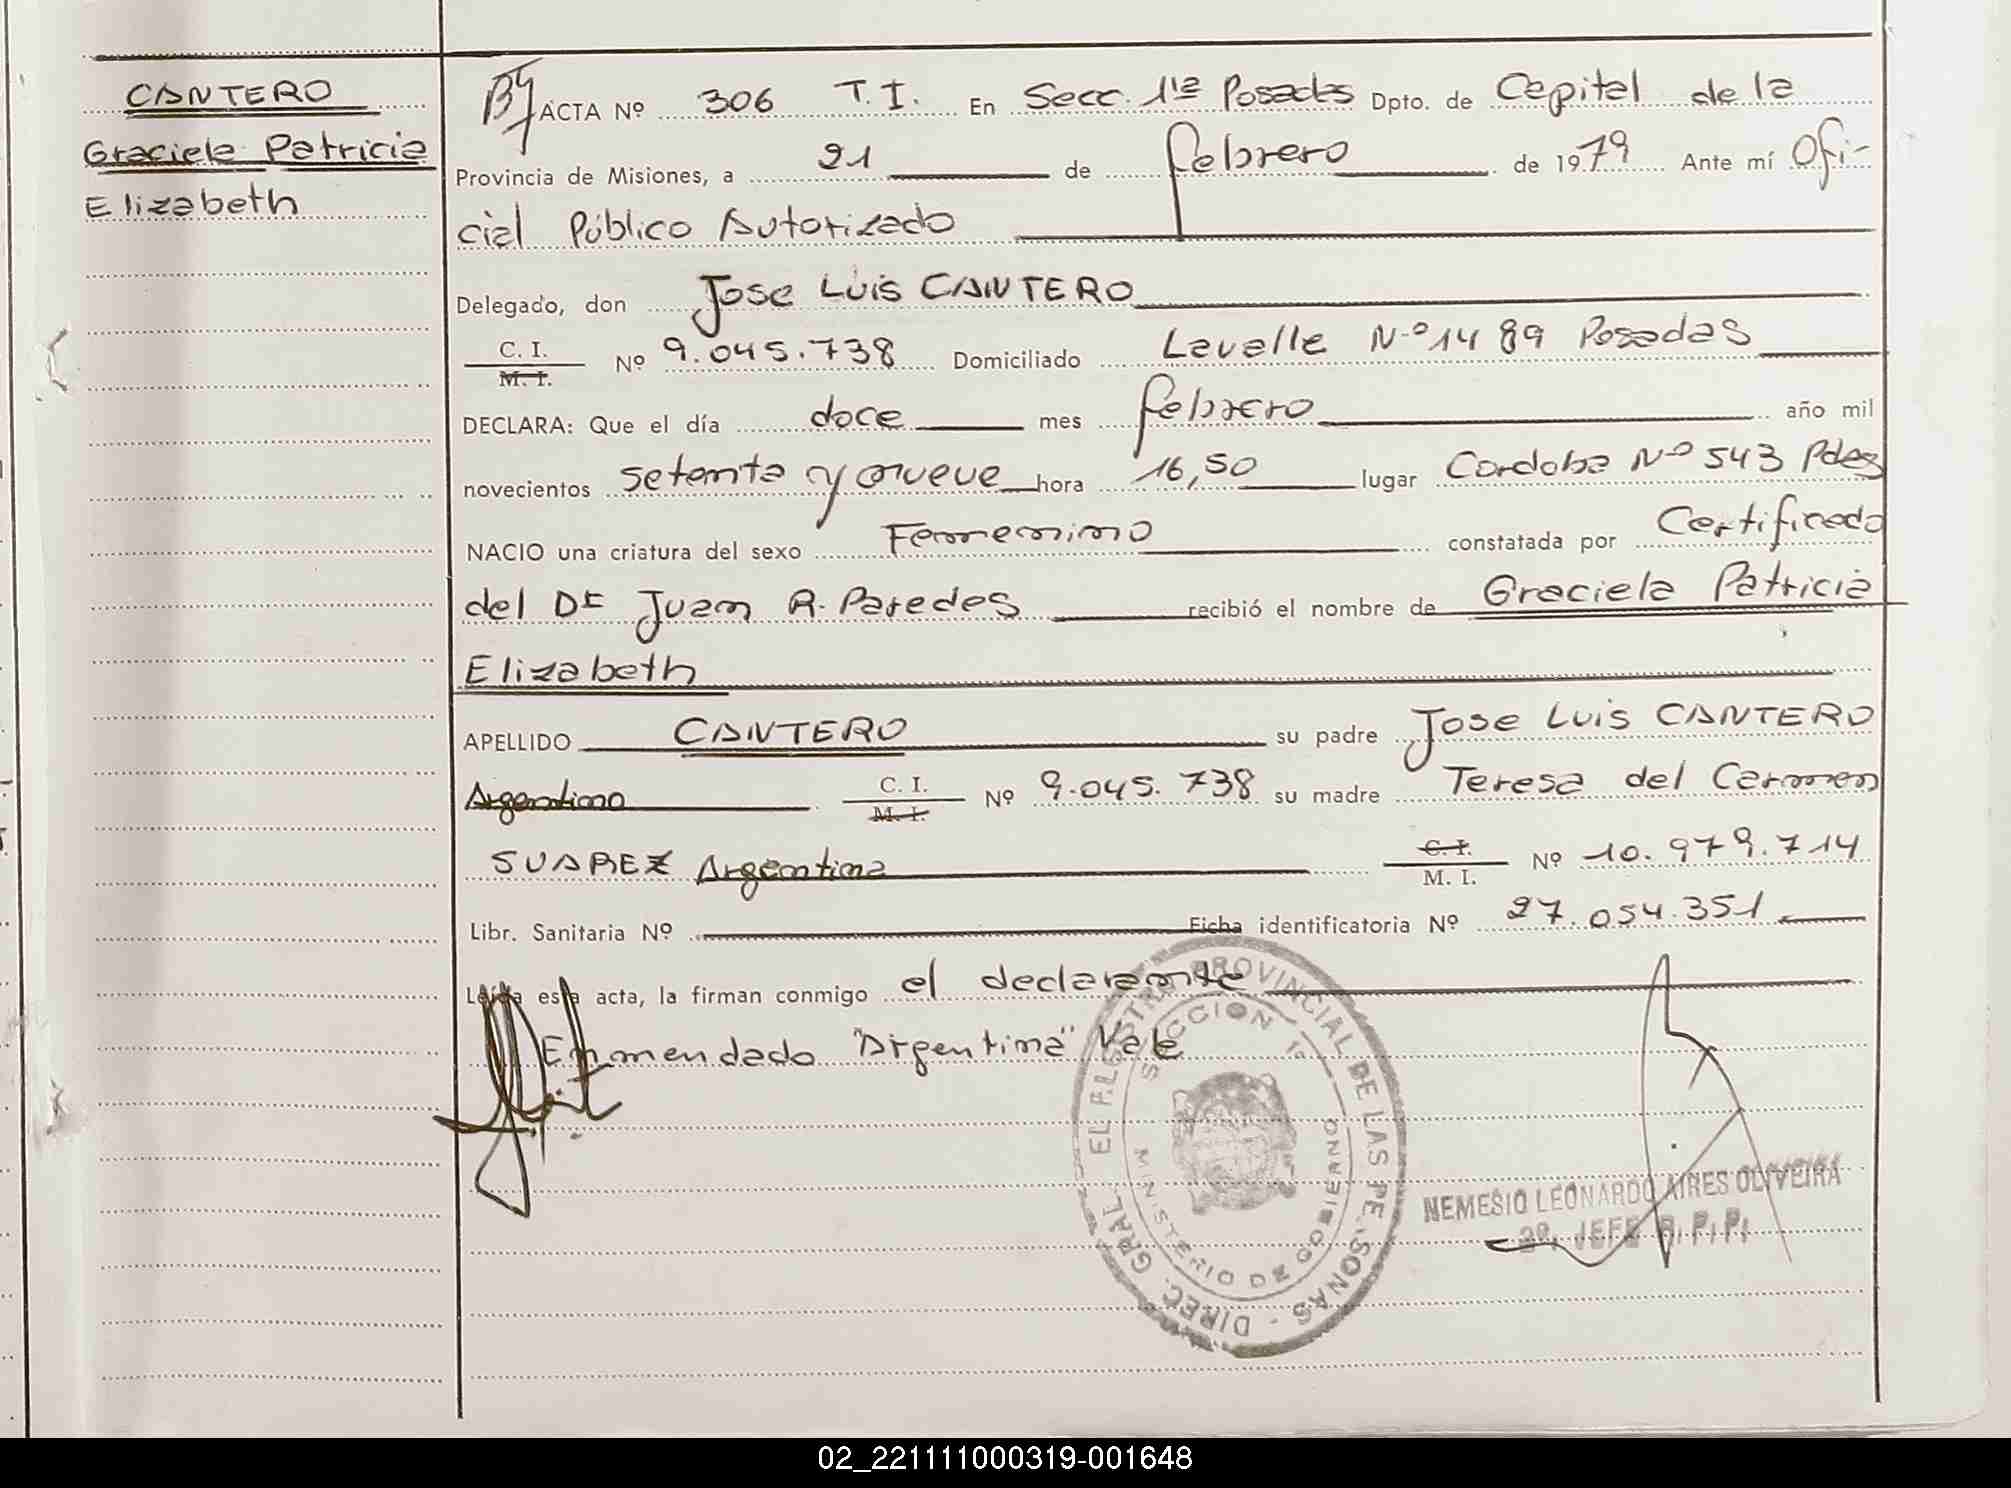 CANTERO
Graciela Patricia
Elizabeth
ACTA Nº 306 T.I. En Secc. 1ra Posadas Dpto. de Capital de la
Provincia de Misiones, a 21 de febrero de 1979 Ante mí Ofi-
cial Público Autorizado
Delegado, don Jose Luis CANTERO
C. I.
M. I.
Nº 9.045.738 Domiciliado Lavalle Nº 1489 Posadas
DECLARA: Que el día doce mes febrero año mil
novecientos setenta y nueve hora 16,50 lugar Cordoba Nº 543 Pdas
NACIO una criatura del sexo Femenino constatada por Certificado
del Dr Juan R. Paredes recibió el nombre de Graciela Patricia
Elizabeth
APELLIDO CANTERO su padre Jose Luis CANTERO
Argentino C. I.
M. I.
Nº 9.045.738 su madre Teresa del Carmen
SUAREZ Argentina C. I.
M. I.
Nº 10.979.714
Libr. Sanitaria Nº Ficha identificatoria Nº 27.054.351
Leída esta acta, la firman conmigo el declarante
Enmendado "Argentina" Vale
DIREC. GRAL. EL REGISTRO PROVINCIAL DE LAS PERSONAS
SECCION 1ª
MINISTERIO DE GOBIERNO
NEMESIO LEONARDO AIRES OLIVEIRA
JEFE R.P.P.
02_221111000319-001648